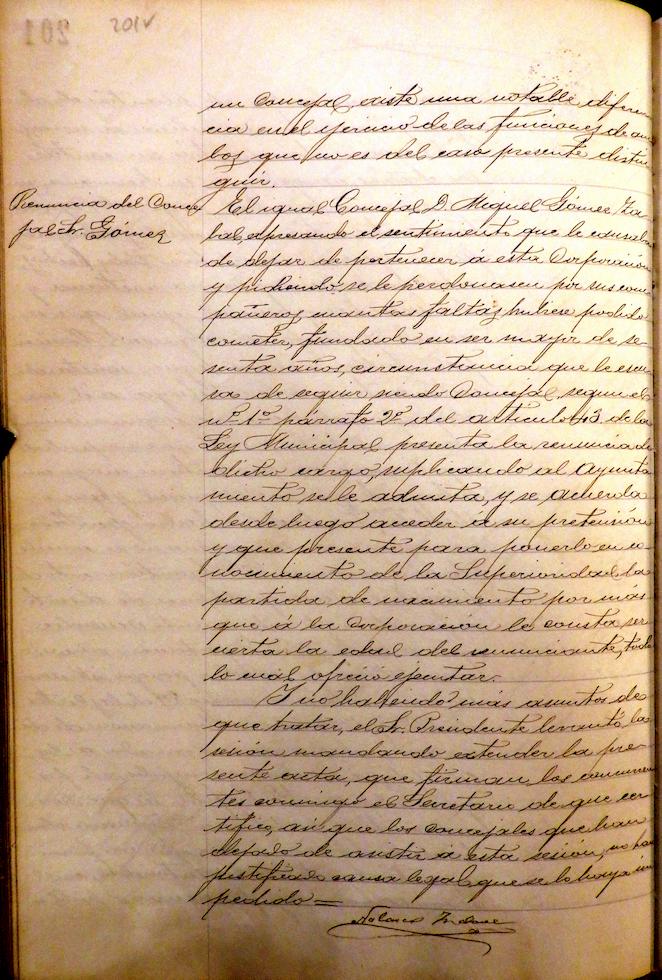 201
201v
un Concejal, existe una notable diferen
cia en el ejercicio de las funciones de am
bos que no es del caso presente distin
guir.
Renuncia del Conce
jal Sr. Gómez
El igual Concejal D. Miguel Gómez Za
bal, expresando el sentimiento que le causaba
de dejar de pertenecer á esta Corporación
y pidiendo se le perdonasen por sus com
pañeros cuantas faltas hubiese podido
cometer, fundado en ser mayor de se
senta años, circunstancia que le escu
sa de seguir siendo Concejal, segun el
nº 1º párrafo 2º del artículo 43 de la
Ley Municipal presenta la renuncia de
dicho cargo, suplicando al Ayunta
miento se le admita, y se acuerda
desde luego acceder á su pretensión
y que presente para ponerlo en co
nocimiento de la Superioridad la
partida de nacimiento por más
que á la Corporación le consta ser
cierta la edad del renunciante, todo
lo cual ofreció ejecutar.
Y no habiendo más asuntos de
que tratar, el Sr. Presidente levantó la
sesión mandando extender la pre
sente acta, que firman los concurren
tes conmigo el Secretario de que cer
tifico, asi que los concejales que han
dejado de asistir á esta sesión, no han
justificado causa legal que se lo haya im
pedido =